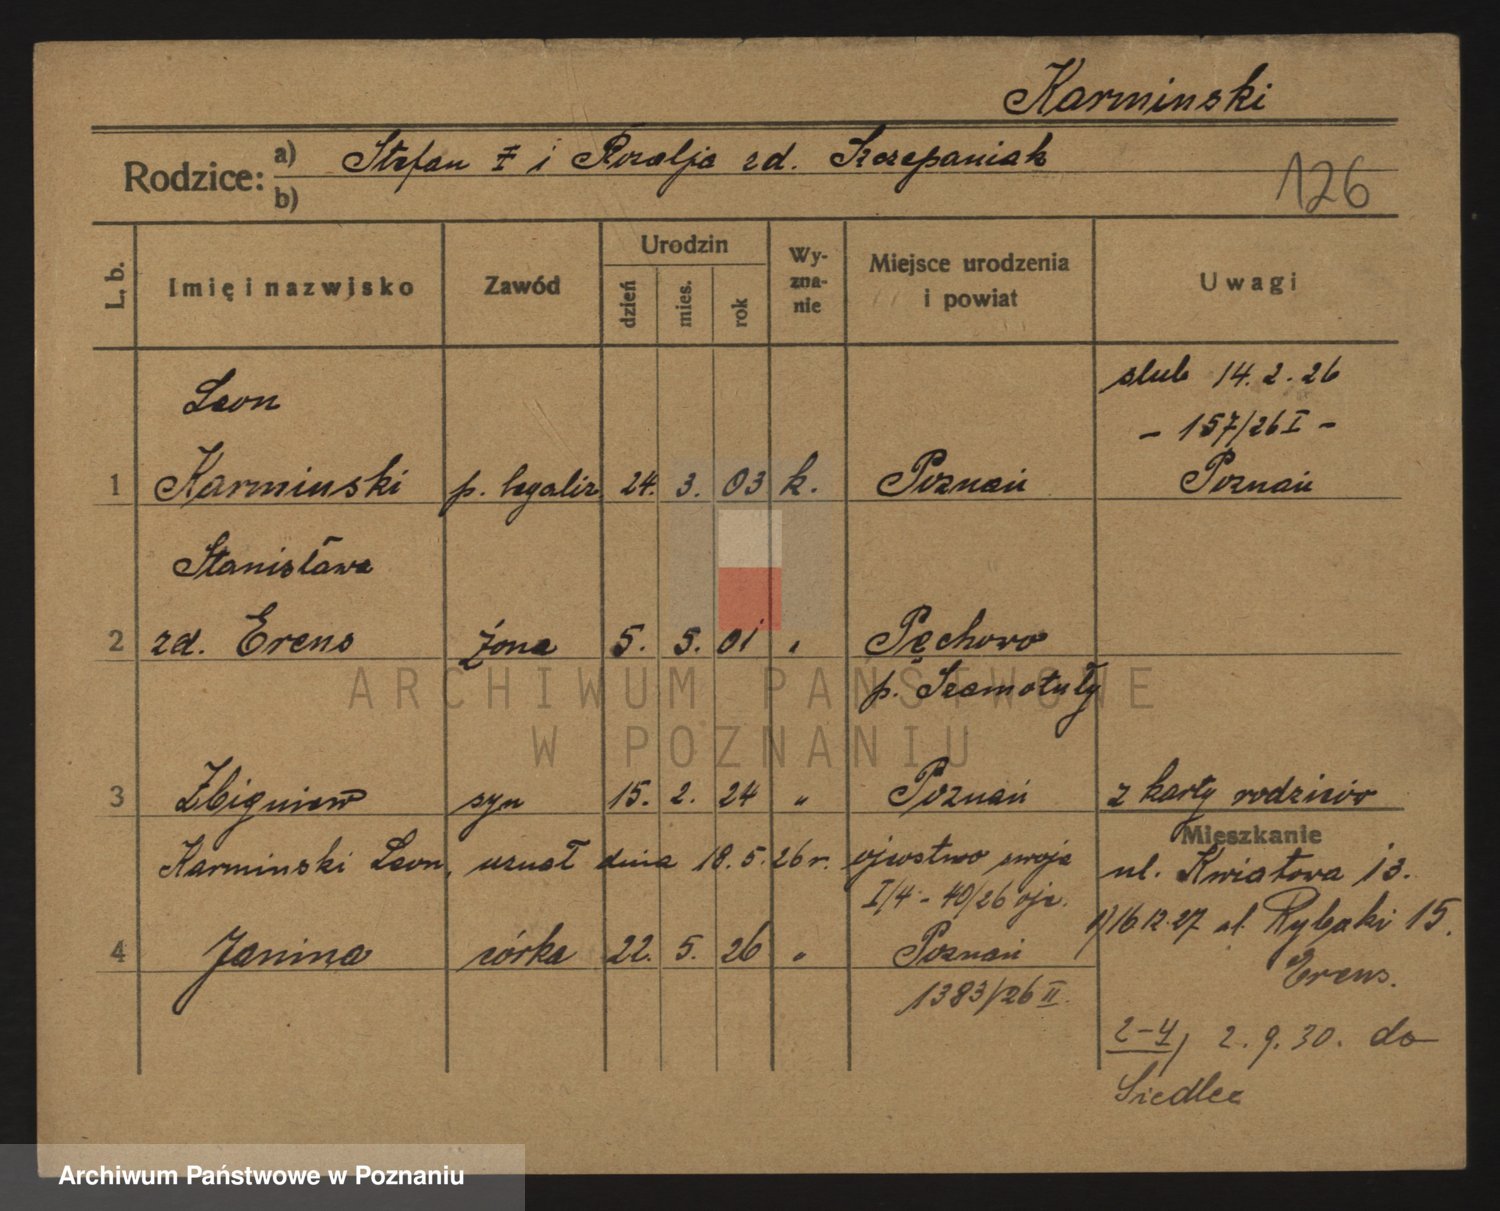 Karminski
Rodzice: a) Stefan i Rozalja zd. Szczepaniak
b)
126
L. b. Imię i nazwisko Zawód Urodzin dzień mies. rok Wyznanie Miejsce urodzenia i powiat Uwagi
Leon slub 14.2.26
- 157/26 I -
1 Karminski p. legaliz. 24. 3. 03 k. Poznań Poznań
Stanisława
2 zd. Erens żona 5. 5. 01 " Pęchowo
p. Szamotuły
ARCHIWUM PAŃSTWOWE
W POZNANIU
3 Zbigniew syn 15. 2. 24 " Poznań z karty rodziców
Mieszkanie
Karminski Leon, uznał dnia 18.5.26 r. ojcostwo swoje ul. Kwiatowa 13.
I/4 - 40/26 ojc. 1) 16.12.27 ul. Rybaki 15.
4 Janina córka 22. 5. 26 " Poznań Erens.
1383/26 II.
2-4) 2.9.30. do
Siedlce
Archiwum Państwowe w Poznaniu